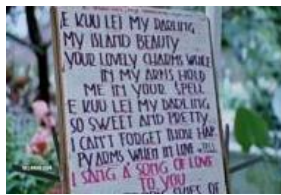 E KUU LEI MY DARLING
MY ISLAND BEAUTY
YOUR LOVELY CHARMS WHILE
IN MY ARMS HOLD
ME IN YOUR SPELL
E KUU LEI MY DARLING
SO SWEET AND PRETTY
I CAN'T FORGET THOSE HAP
PY ARMS WHEN IN LOVE
I SANG A SONG OF LOVE
TO YOU
OF